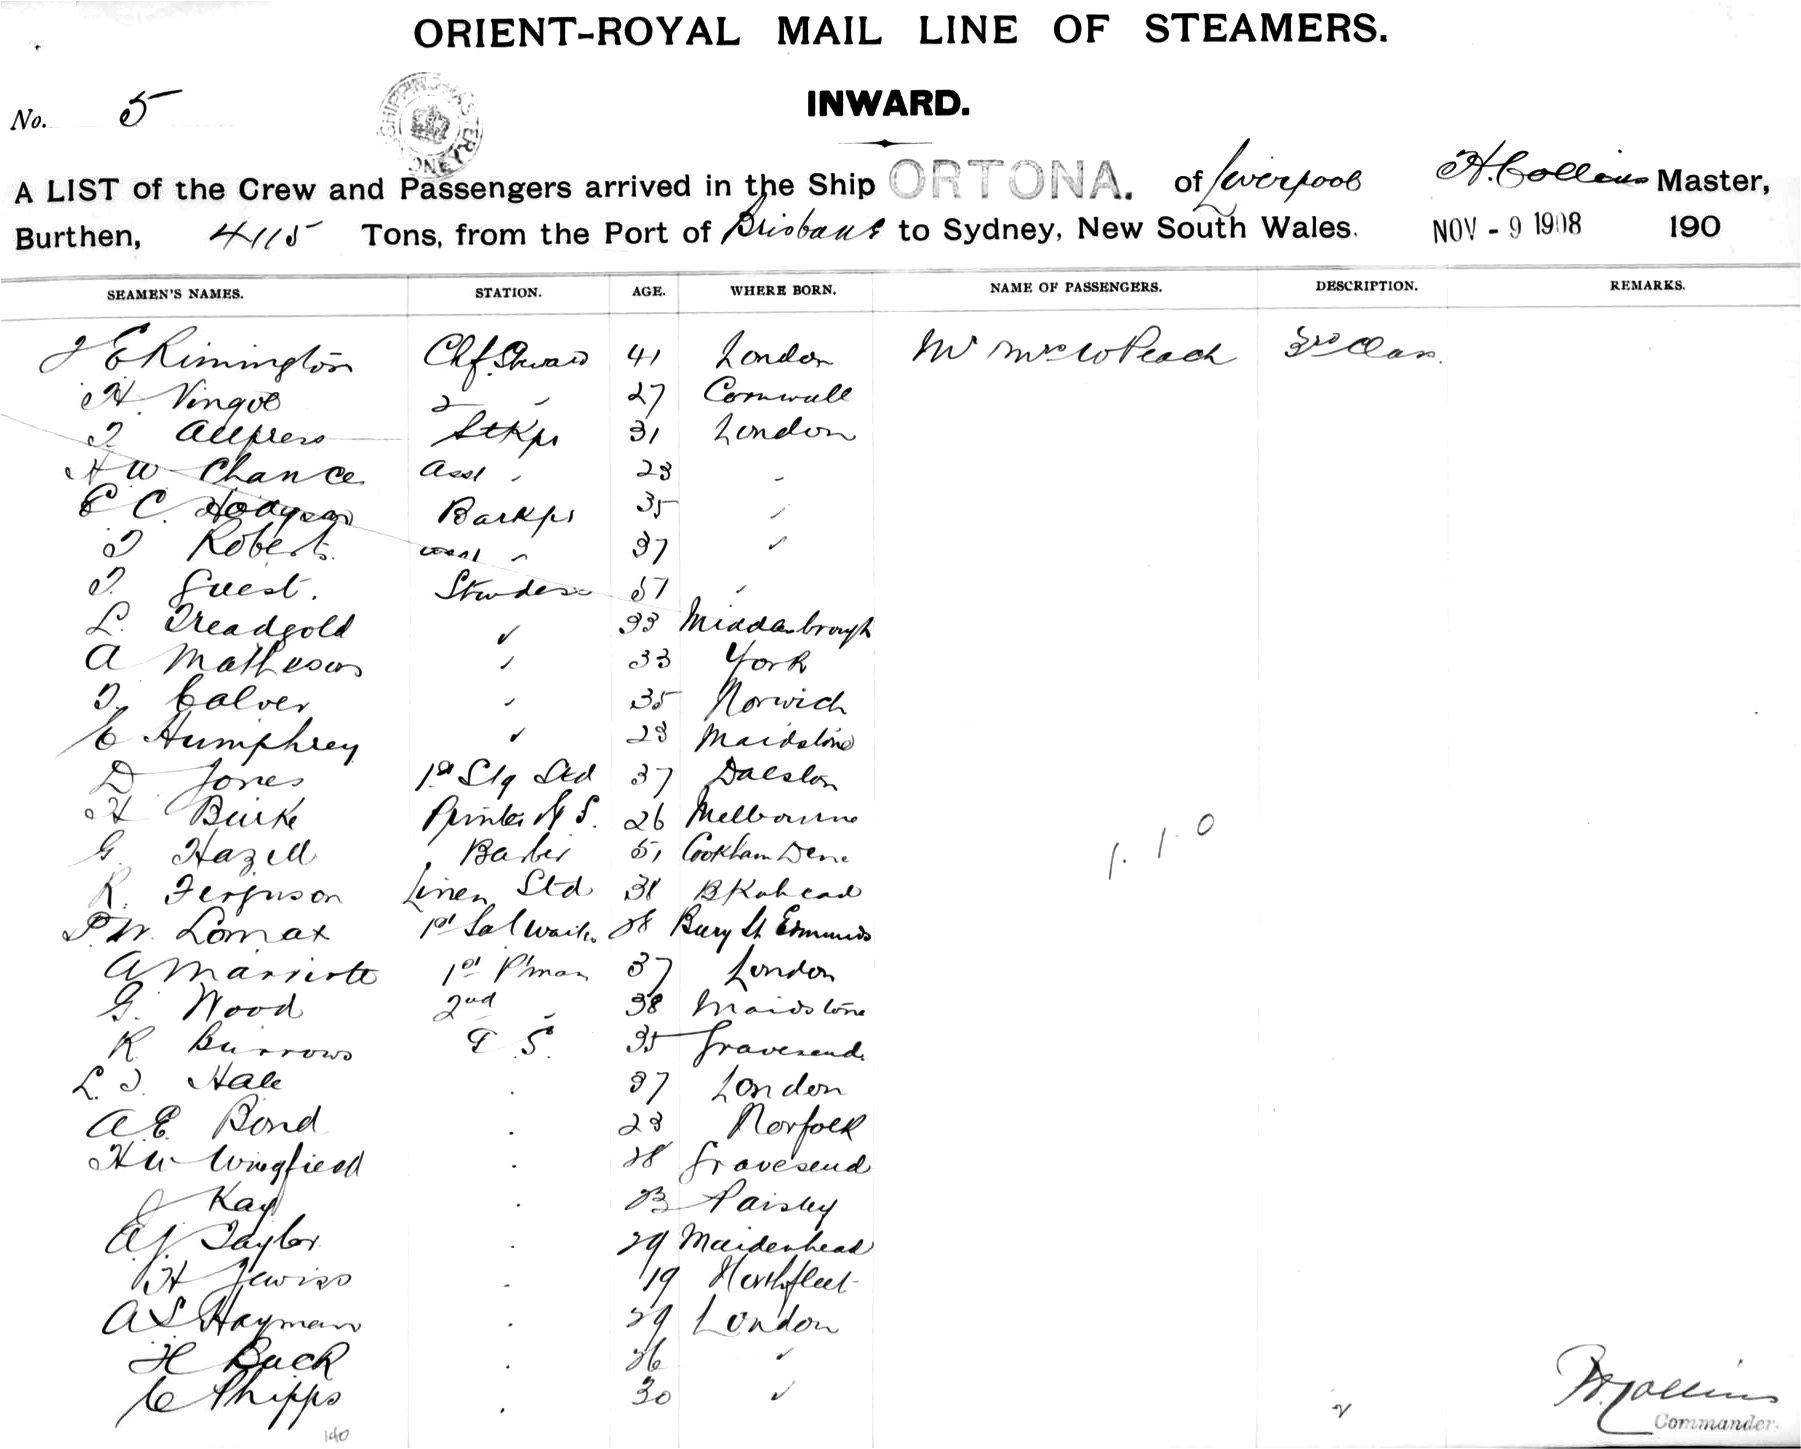 ORIENT-ROYAL MAIL LINE OF STEAMERS.
INWARD.
No. 5
A LIST of the Crew and Passengers arrived in the Ship ORTONA. of Liverpool H. Collins Master,
Burthen, 4115 Tons, from the Port of Brisbane to Sydney, New South Wales. NOV - 9 1908 190
SEAMEN'S NAMES. STATION. AGE. WHERE BORN. NAME OF PASSENGERS. DESCRIPTION. REMARKS.
J E Rimington Chf. Steward 41 London Mr Mrs W Peach 3rd Class.
H. Vingoe 2 " 27 Cornwall
T Allpress StKpr 31 London
H W Chance Asst " 23 "
E C. Hodgson Barkpr 35 "
T Roberts. Asst " 37 "
T. Guest. Stwdess 57 "
L. Treadgold " 33 Middlesbrough
A Matheson " 33 York
T. Calver " 35 Norwich
C Humphrey " 23 Maidstone
D Jones 1st Stg Std 37 Dalston
H Burke Printer & S. 26 Melbourne
G. Hazell Barber 51 Cookham Dene
R. Ferguson Linen Std 38 BKnhead
P. W. Lomax 1st Sal Waiter 28 Bury St Edmunds
A Marriott 1st P'man 37 London
G. Wood 2nd " 38 Maidstone
R. Burrows G. S. 35 Gravesend
L. T. Hale " 37 London
A. E. Bond " 23 Norfolk
H W Wingfield " 28 Gravesend
J Kay " 23 Paisley
A. J. Taylor " 29 Maidenhead
H Jewiss " 19 Northfleet
A S Hayman " 29 London
H Buck " 26 "
C Phipps " 30 "
1. 1. 0
140
2
H. Collins
Commander.